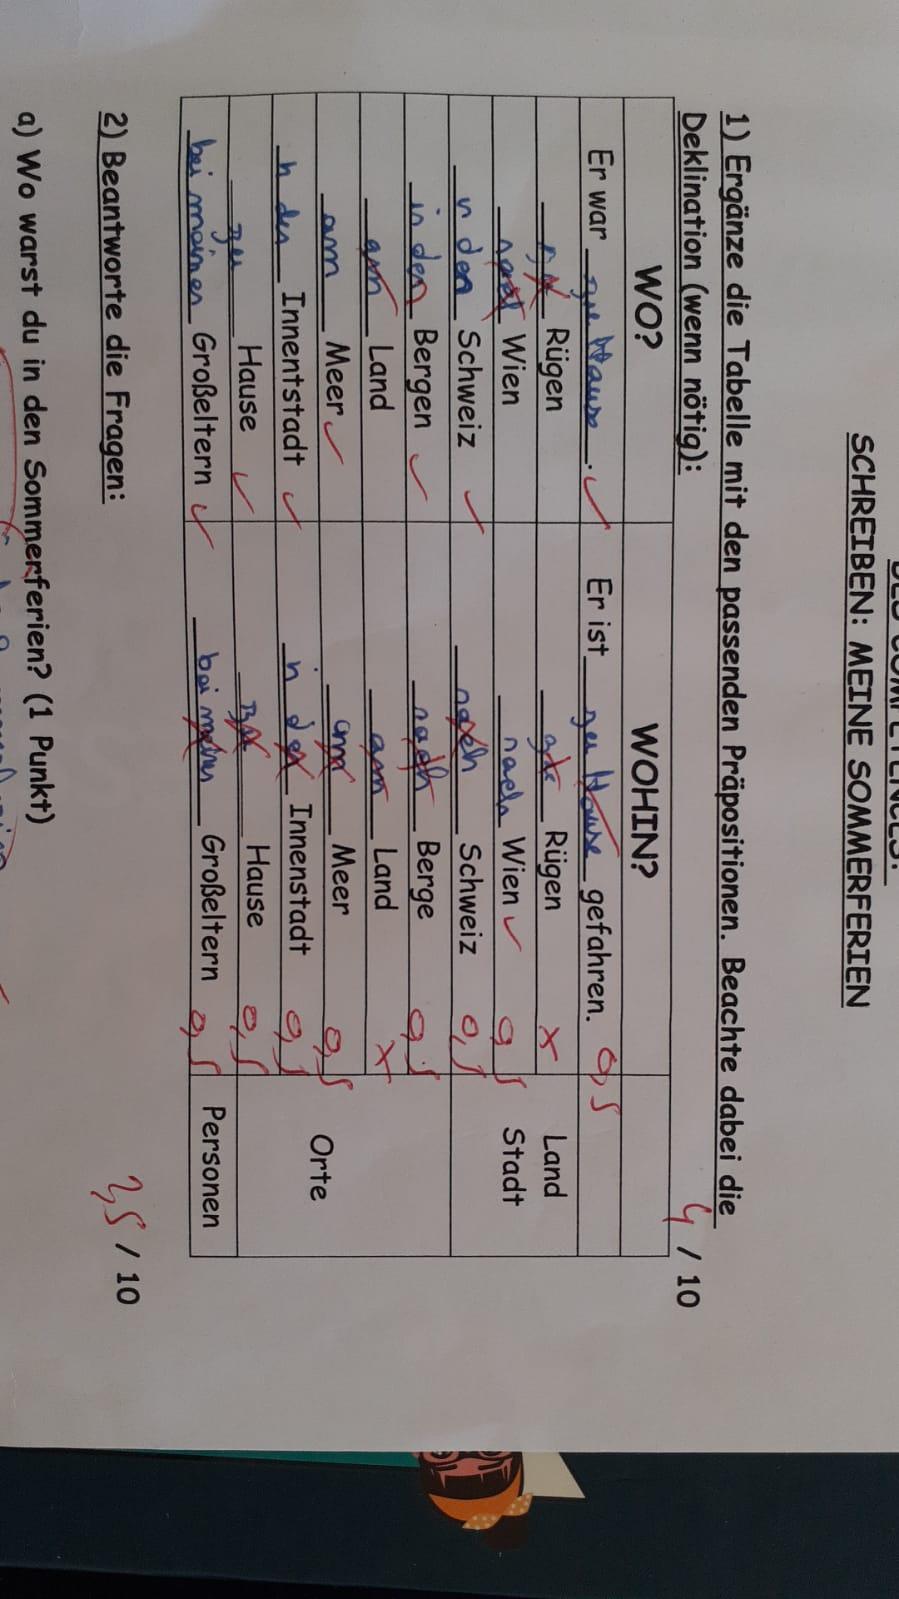 SCHREIBEN: MEINE SOMMERFERIEN
1) Ergänze die Tabelle mit den passenden Präpositionen. Beachte dabei die
Deklination (wenn nötig): 4 / 10
WO? WOHIN?
Er war zu Hause. Er ist zu Hause gefahren. 0,5
Rügen Rügen x Land
Wien nach Wien 0,5 Stadt
in den Schweiz nach Schweiz 0,5
in den Bergen nach Berge 0,5
am Land am Land x
am Meer am Meer 0,5 Orte
in der Innentstadt in der Innenstadt 0,5
zu Hause zu Hause 0,5
bei meinen Großeltern bei mein Großeltern 0,5 Personen
2) Beantworte die Fragen: / 10
a) Wo warst du in den Sommerferien? (1 Punkt)